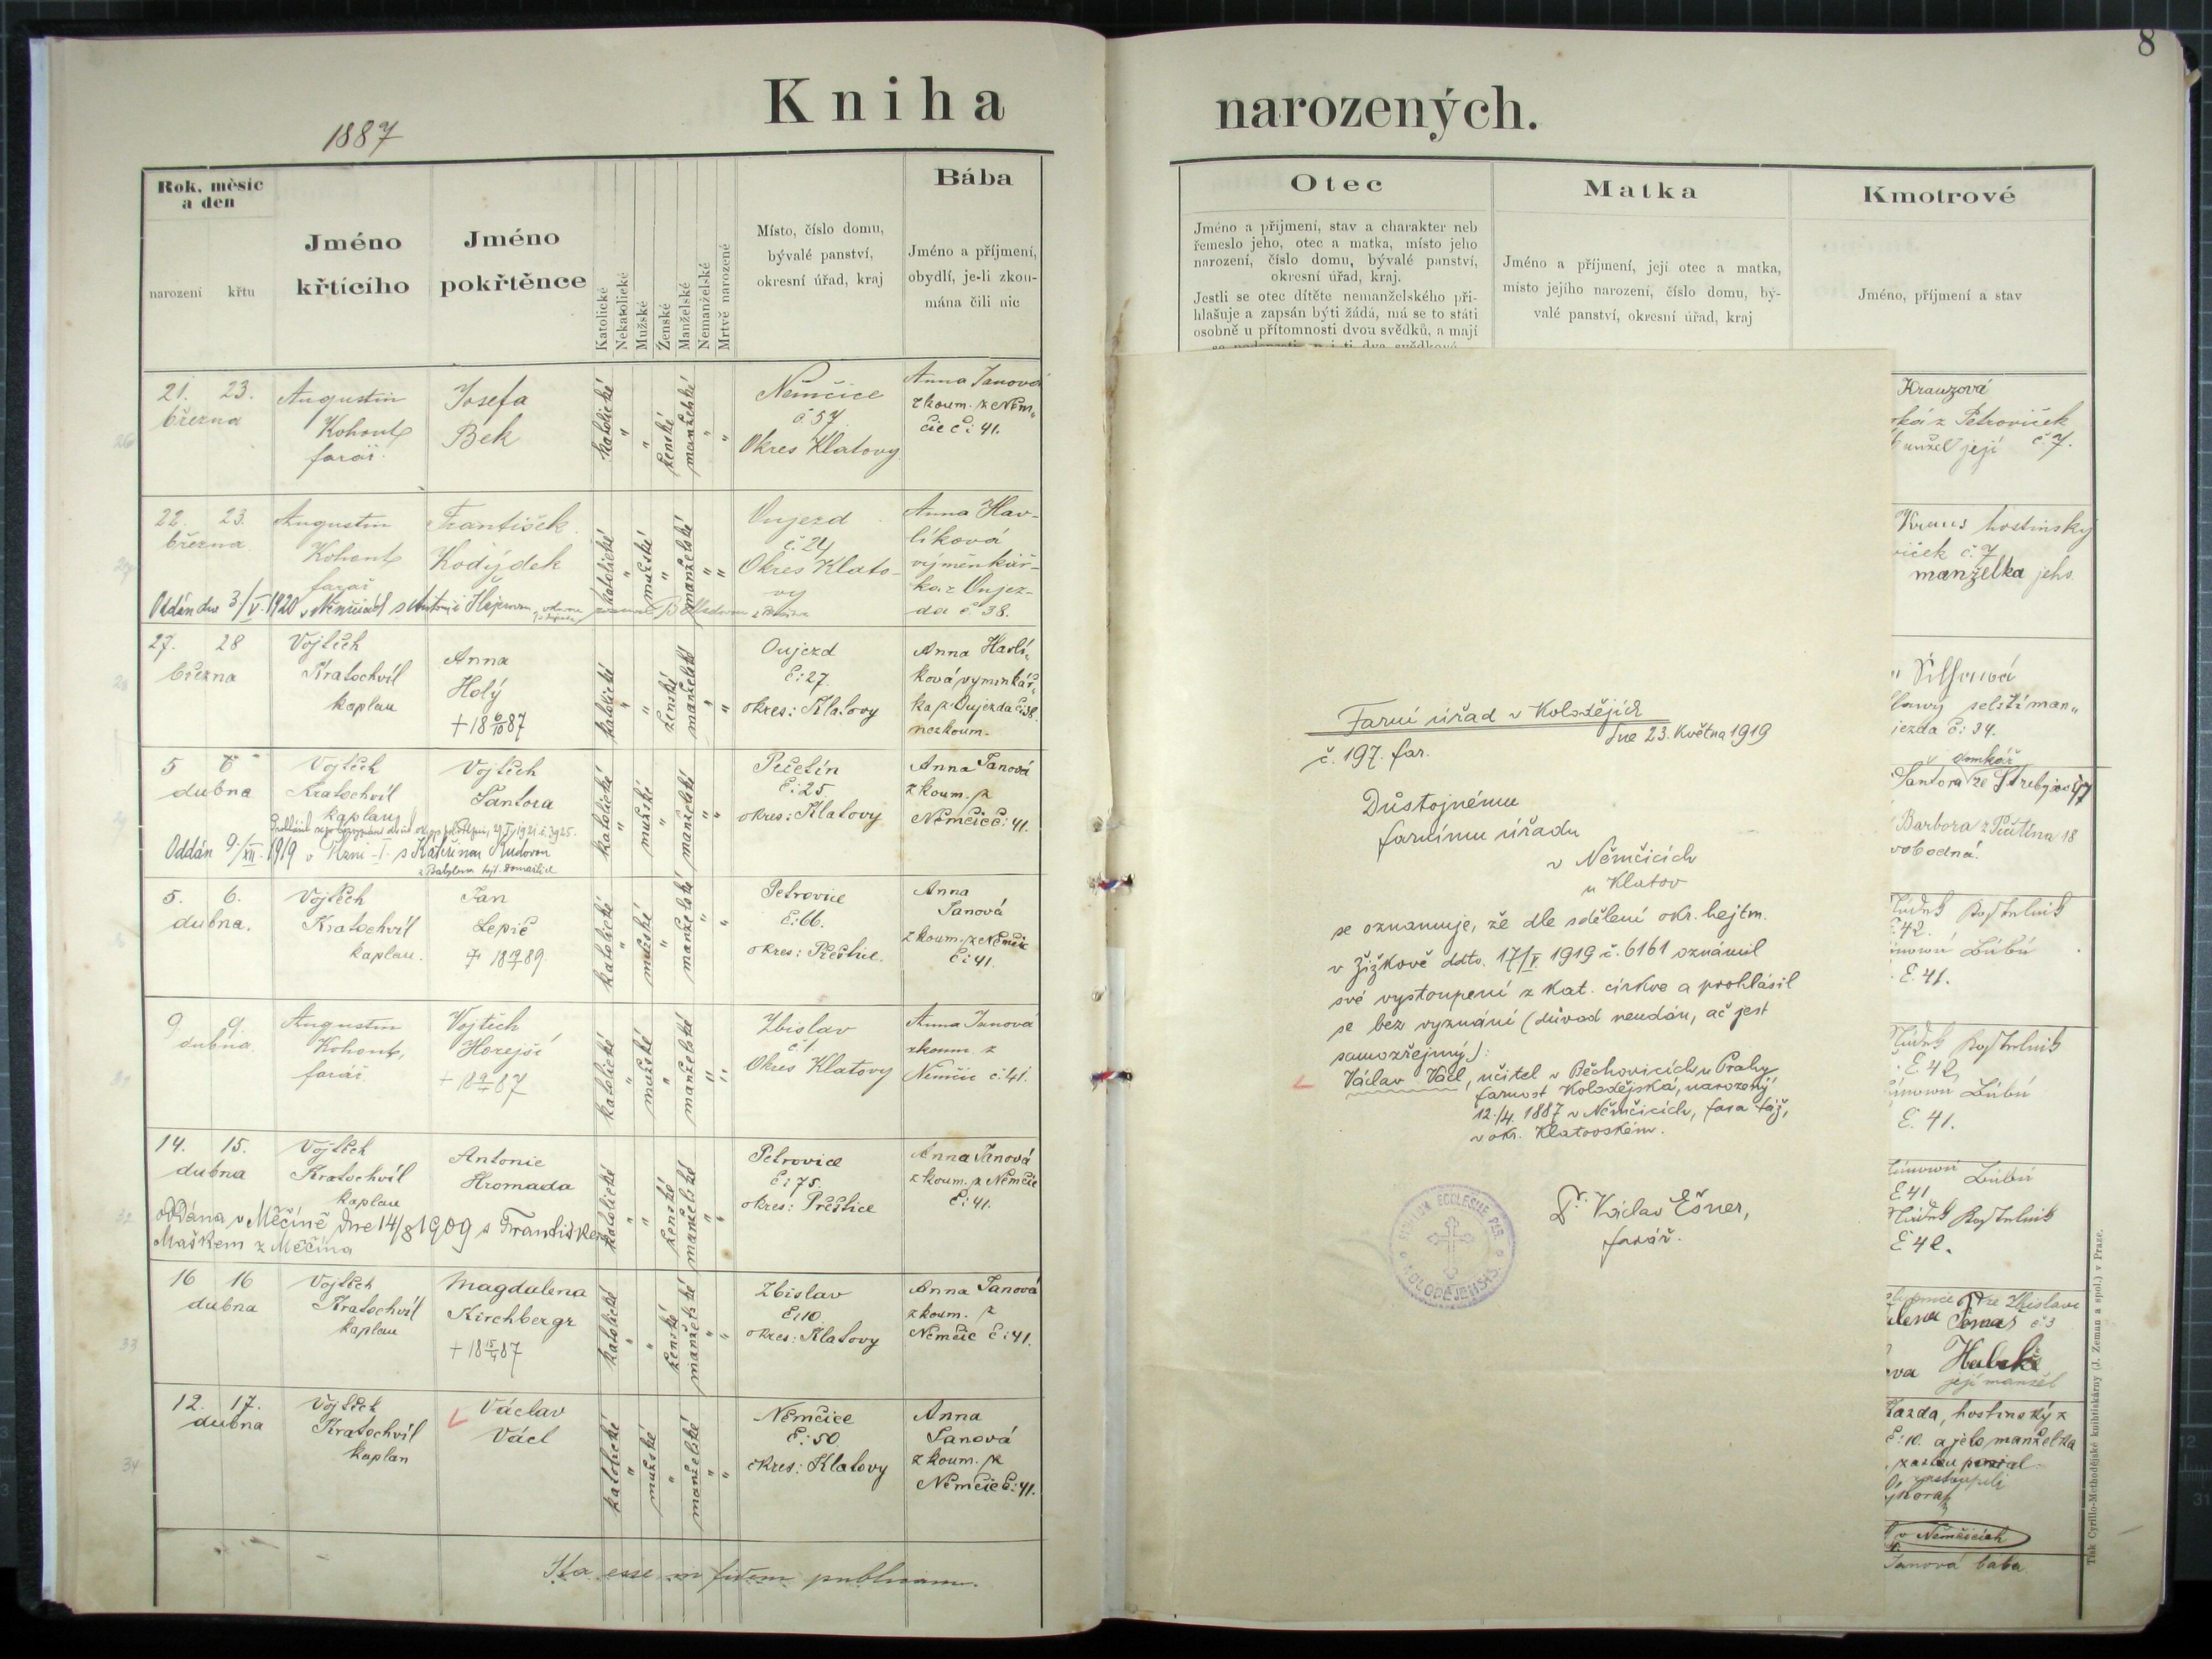 8
Kniha
narozených.
1887
Rok, měsíc
a den
narození
křtu
Jméno
křtícího
Jméno
pokřtěnce
Katolické
Nekatolické
Mužské
Ženské
Manželské
Nemanželské
Mrtvě narozené
Místo, číslo domu,
bývalé panství,
okresní úřad, kraj
Bába
Jméno a příjmení,
obydlí, je-li zkou-
mána čili nic
Otec
Jméno a příjmení, stav a charakter neb
řemeslo jeho, otec a matka, místo jeho
narození, číslo domu, bývalé panství,
okresní úřad, kraj.
Jestli se otec dítěte nemanželského při-
hlašuje a zapsán býti žádá, má se to státi
osobně u přítomnosti dvou svědků, a mají
Matka
Jméno a příjmení, její otec a matka,
místo jejího narození, číslo domu, bý-
valé panství, okresní úřad, kraj
Kmotrové
Jméno, příjmení a stav
26
21. 23.
března
Augustin
Kohout
farář.
Josefa
Bek
katolické
"
"
ženské
manželské
"
"
Němčice
č. 57
Okres Klatovy
Anna Janová
zkoum. z Něm„
čic č: 41.
Krauzová
ská z Petroviček
manžel její č. 7.
22. 23.
března
Augustin
Kohout
farář
František
Kodýdek
katolické
"
mužské
"
manželské
"
"
Oujezd
č. 24
Okres Klato-
vy
Anna Hav-
líková
výměnkář-
ka z Oujez-
da č. 38.
Oddán dne 3/V. 1920 v Němčicích s Antonií
Kraus hostinský
viček č. 7
manželka jeho.
28
27. 28
března
Vojtěch
Kratochvíl
kaplan
Anna
Holý
+ 18 6/10 87
katolické
"
"
ženské
manželské
"
"
Oujezd
č: 27.
okres: Klatovy
Anna Havlí„
ková vyminkář„
ka z Oujezda č: 38.
nezkoum.
jezda č: 34.
29
5 6
dubna
Vojtěch
Kratochvíl
kaplan
Vojtěch
Šantora
katolické
"
mužské
"
manželské
"
"
Pečetín
č: 25.
okres: Klatovy
Anna Janová
zkoum. z
Němčic č: 41.
Oddán 9./XII. 1919 v Plzni -I- s Kateřinou Rudovou
z Babylonu
domkář
Šantora ze Střebýcova 47
Barbora z Pečetína 18
svobodná.
5. 6.
dubna.
Vojtěch
Kratochvíl
kaplan.
Jan
Lepič
katolické
"
mužské
"
manželské
"
"
Petrovice
č: 66.
okres: Přeštice.
Anna
Janová
zkoum. z Němčic
č: 41.
č. 42.
č. 41.
31
9. 9.
dubna.
Augustin
Kohout,
farář.
Vojtěch
Hořejší
katolické
"
mužské
"
manželské
"
"
Zbislav
č 1
Okres Klatovy
Anna Janová
zkoum. z
Němčic č. 41.
č. 42,
č. 41.
32
14. 15.
dubna
Vojtěch
Kratochvíl
kaplan
Antonie
Hromada
katolické
"
"
ženské
manželské
"
"
Petrovice
č: 75.
okres: Přeštice
Anna Janová
zkoum. z Němčic
č: 41.
oddána v Měčíně dne 14/8 1909 s Františkem
Maškem z Měčína
č 41
č 42.
33
16 16
dubna
Vojtěch
Kratochvíl
kaplan
Magdalena
Kirchbergr
+ 18 15/4 87
katolické
"
"
ženské
manželské
"
"
Zbislav
č: 10.
okres: Klatovy
Anna Janová
zkoum. z
Němčic č: 41.
ze Zbislavi
č 3
její manžel
34
12. 17.
dubna
Vojtěch
Kratochvíl
kaplan
Václav
Václ
katolické
"
mužské
"
manželské
"
"
Němčice
č: 50.
okres: Klatovy
Anna
Janová
zkoum. z
Němčic č: 41.
Kazda, hostinský z
č: 10. a jeho manželka
zastoupeli
v Němčicích
Janová bába
Ita esse in fidem publicam.
Farní úřad v Kolodějích
dne 23. května 1919
č. 197. far.
Důstojnému
farnímu úřadu
v Němčicích
u Klatov
se oznamuje, že dle sdělení okr. hejtm.
v Žižkově ddto. 17/V. 1919 č. 6161 oznámil
své vystoupení z kat. církve a prohlásil
se bez vyznání (důvod neudán, ač jest
samozřejmý):
Václav Václ, učitel v Běchovicích u Prahy
farnost Kolodějská, narozený
12./4. 1887 v Němčicích, fara táž,
v okr. Klatovském.
Dr. Václav Ešner,
farář.
SIGILLUM ECCLESIAE PAR. KOLODĚJENSIS.
Tisk Cyrillo-Methodějské knihtiskárny (J. Zeman a spol.) v Praze.